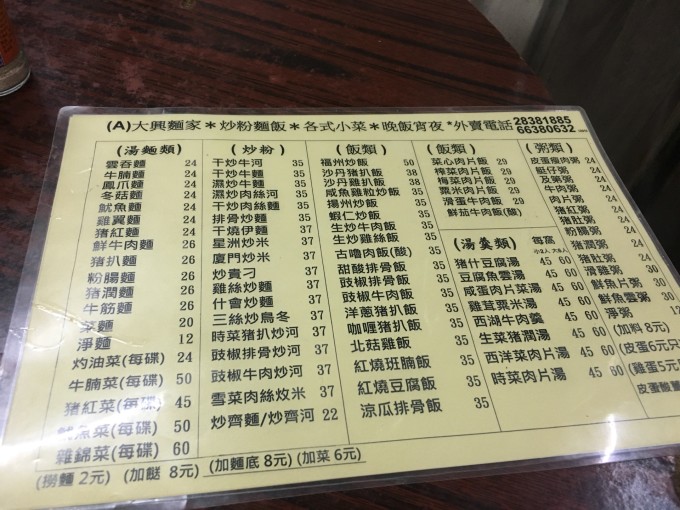 (A)大興麵家*炒粉麵飯*各式小菜*晚飯宵夜*外賣電話 28381885
66380632
(湯麵類)
雲吞麵 24
牛腩麵 24
鳳爪麵 24
冬菇麵 24
魷魚麵 24
雞翼麵 24
猪紅麵 24
鮮牛肉麵 26
猪扒麵 26
粉腸麵 26
猪潤麵 26
牛筋麵 26
菜麵 20
淨麵 12
灼油菜(每碟) 24
牛腩菜(每碟) 50
猪紅菜(每碟) 45
魷魚菜(每碟) 50
雜錦菜(每碟) 60
(炒粉)
干炒牛河 35
干炒牛麵 35
濕炒牛河 35
濕炒肉絲河 35
干炒肉絲麵 35
排骨炒麵 35
干燒伊麵 35
星洲炒米 37
廈門炒米 37
炒貴刁 37
雞絲炒麵 37
什會炒麵 37
三絲炒烏冬 37
時菜猪扒炒河 37
豉椒排骨炒河 37
豉椒牛肉炒河 37
雪菜肉絲炆米 37
炒齋麵/炒齋河 22
(飯類)
福州炒飯 50
沙丹猪扒飯 38
沙丹雞扒飯 38
咸魚雞粒炒飯 35
揚州炒飯 35
蝦仁炒飯 35
生炒牛肉飯 35
生炒雞絲飯 35
古嚕肉飯(酸) 35
甜酸排骨飯 35
豉椒排骨飯 35
豉椒牛肉飯 35
洋蔥猪扒飯 35
咖喱猪扒飯 35
北菇雞飯 35
紅燒班腩飯 35
紅燒豆腐飯 35
涼瓜排骨飯 35
(飯類)
菜心肉片飯 29
榨菜肉片飯 29
梅菜肉片飯 29
粟米肉片飯 29
滑蛋牛肉飯 29
鮮茄牛肉飯(酸)
(湯羹類) 每窩
猪什豆腐湯 45 60
豆腐魚雲湯 45 60
咸蛋肉片菜湯 45 60
雞茸粟米湯 45 60
西湖牛肉羹 45 60
生菜猪潤湯 45 60
西洋菜肉片湯 45 60
時菜肉片湯 45 60
(粥類)
皮蛋瘦肉粥 24
艇仔粥 24
及第粥 24
牛肉粥 24
肉片粥 24
猪紅粥 24
猪肚粥 24
粉腸粥 24
猪潤粥 24
滑雞粥 30
鮮魚片粥 30
鮮魚雲粥 30
淨粥 12
(加料 8元)
(皮蛋 6元只
(雞蛋 5元
皮蛋酸薑
(撈麵 2元) (加餸 8元) (加麵底 8元) (加菜 6元)